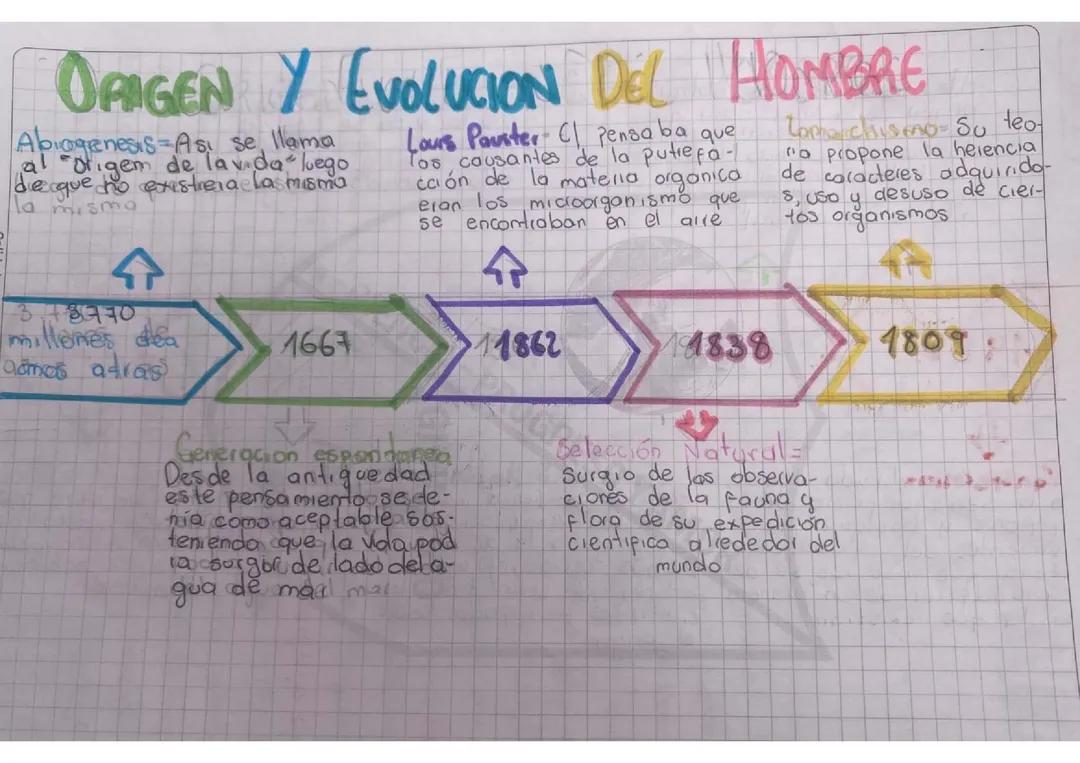 ORIGEN Y EVOLUCION DEL HOMBRE
Abiogenesis= Asi se llama
al "origem de la vida" luego
de que no existiera la misma
la misma
Lours Pauster- El pensaba que
los causantes de la putrefa-
cción de la materia organica
eran los microorganismo que
se encontraban en el aire
Lamarchismo- Su teo-
ria propone la herencia
de caracteres adquirido-
s, uso y desuso de cier-
tos organismos
3
8770
millemes dea
atras)
1667
1862
1838
1809
Generacion espontanea
Desde la antiguedad
este pensamiento se te-
nia como aceptable sos-
teniendo que la vida pod
ia surgir de lado del a-
gua de mar mar
Selección Natural=
Surgio de las observa-
ciones de la fauna y
flora de su expedición
cientifica alrededor del
mundo